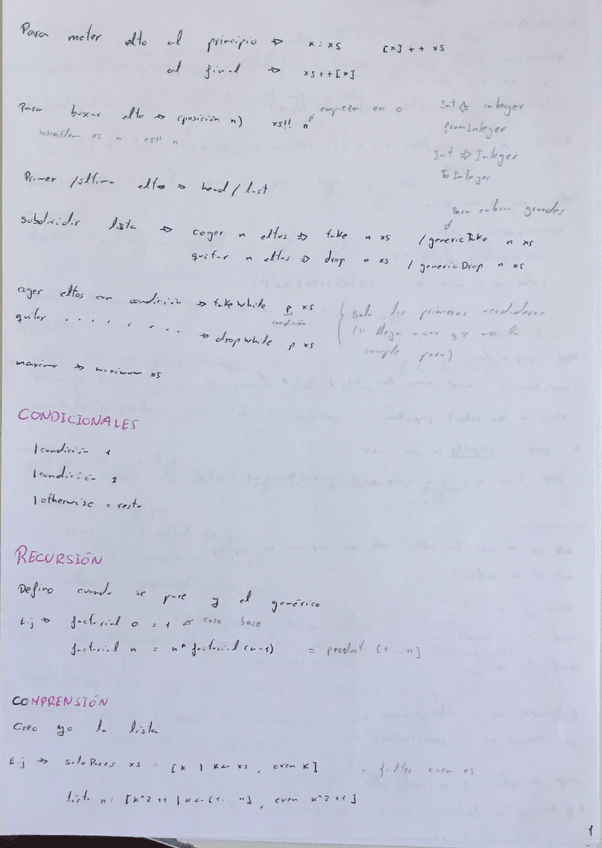 Para meter elto al principio => x:xs [x] ++ xs
al final => xs++[x]
Para buscar elto => (posición n) xs!! n empieza en 0
xs!! n
Int <= integer
fromInteger
Int => Integer
ToInteger
Primer /último eltos => head/last
Para enteros grandes
subdividir lista => coger n eltos => take n xs /genericTake n xs
quitar n eltos => drop n xs / genericDrop n xs
coger eltos con condición => takeWhile p xs
condición
quitar . . . . . . . . => dropWhile p xs
solo los primeros
(si llega a uno que no lo
cumple para)
maximo => maximum xs
CONDICIONALES
|condición 1
|condición 2
|otherwise = resto
RECURSIÓN
Defino cuando se pare y el genérico
Ej => factorial 0 = 1 caso base
factorial n = n* factorial (n-1) = product [1.. n]
COMPRENSIÓN
Creo yo la lista
Ej => soloPares xs = [x | x<- xs, even x] = filter even xs
lista n = [x^2 +1 | x<- [1.. n], even x^2+1]
1